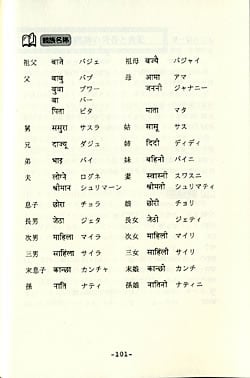 親族名称
祖父 बाजे バジェ 祖母 बज्यै バジャイ
父 बाबु バブ 母 आमा アマ
बुबा ブワー जननी ジャナニー
बा バー
पिता ピタ माता マタ
舅 ससुरा サスラ 姑 सासू サス
兄 दाज्यू ダジュ 姉 दिदी ディディ
弟 भाइ バイ 妹 बहिनी バイニ
夫 लोग्ने ログネ 妻 स्वास्नी スワスニ
श्रीमान シュリマーン श्रीमती シュリマティ
息子 छोरा チョラ 娘 छोरी チョリ
長男 जेठा ジェタ 長女 जेठी ジェティ
次男 माहिला マイラ 次女 माहिली マイリ
三男 साहिंला サイラ 三女 साहिंली サイリ
末息子 कान्छा カンチャ 末娘 कान्छी カンチ
孫 नाति ナティ 孫娘 नातिनी ナティニ
-101-